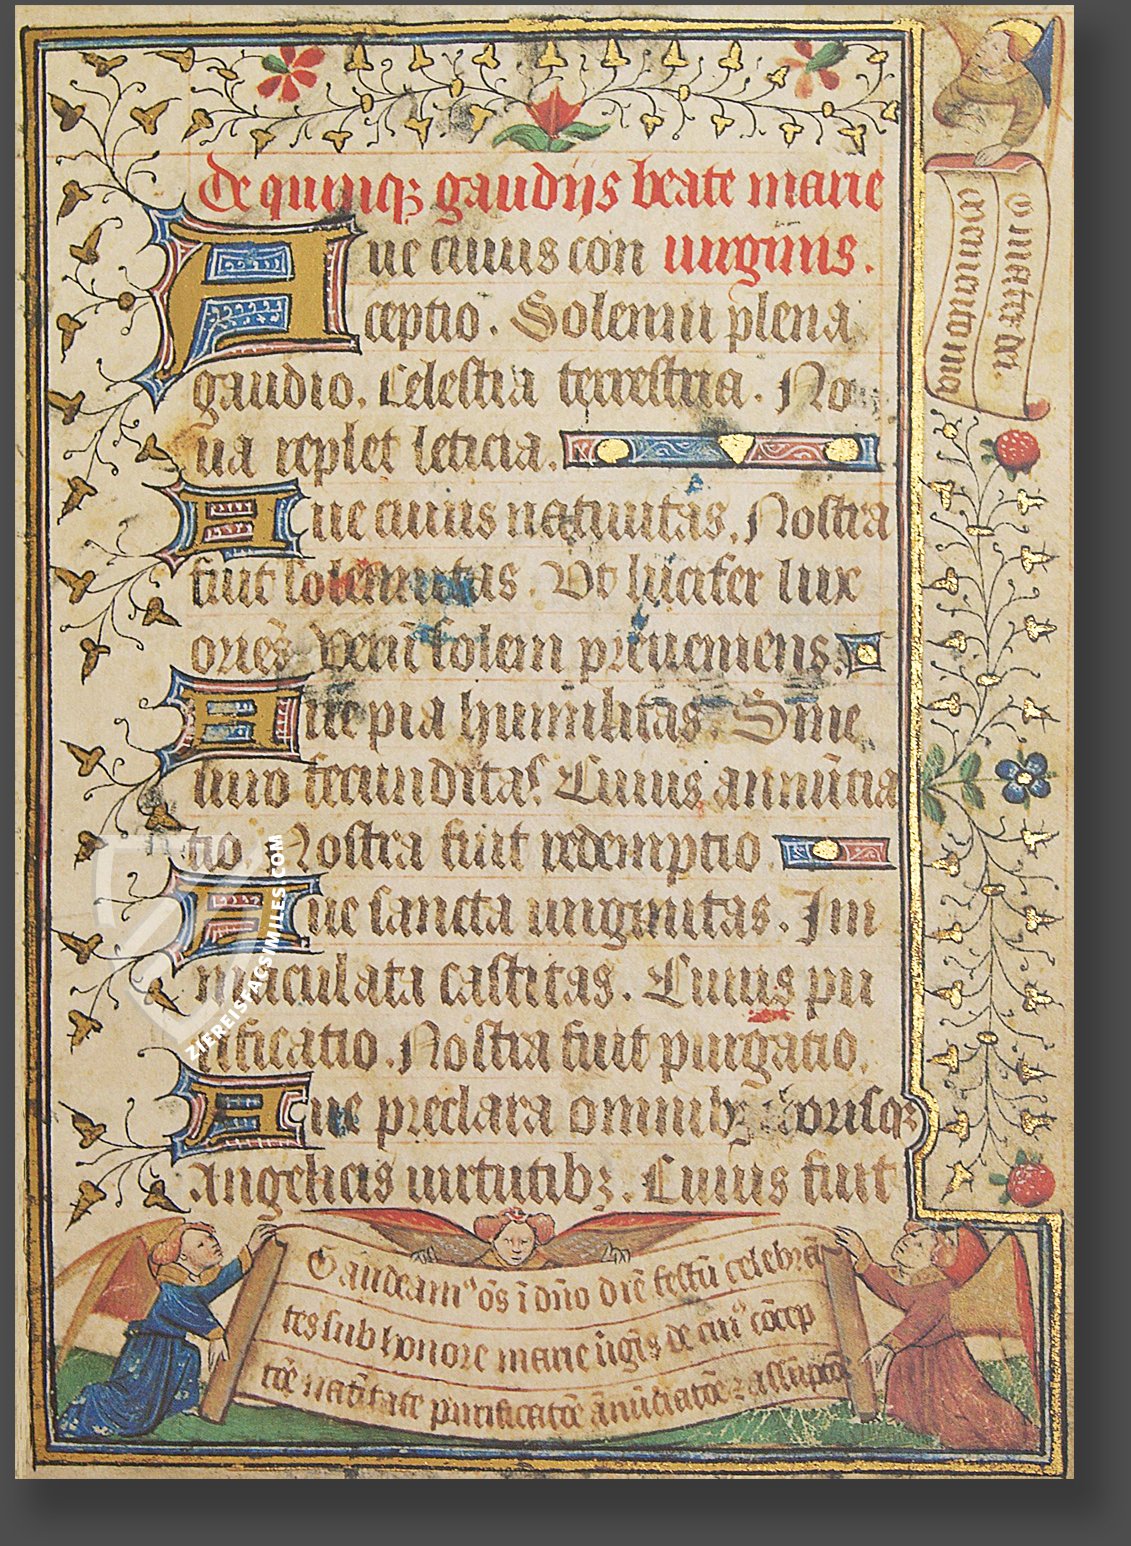 De quinqꝫ gaudijs beate marie
Aue cuius con uirginis.
ceptio. Solenni plena
gaudio. Celestia terrestria. No
ua replet leticia.
Aue cuius natiuitas. Nostra
fuit solemnitas. Vt lucifer lux
oriēs. Verū solem preueniens.
Aue pia humilitas. Sine
uiro fecunditas. Cuius annūcia
tio. Nostra fuit redemptio.
Aue sancta uirginitas. Im
maculata castitas. Cuius pu
rificatio. Nostra fuit purgatio.
Aue preclara omnibꝫ
Angelicis uirtutibꝫ. Cuius fuit
O mater dei
memento mei
Gaudeamꝰ oēs ī dn̄o diē festū celebrā
tes sub honore marie ūgīs de cuiꝰ cōcep
tōe natiuitate purificatōe ānūciatōe
ZIEREISFACSIMILES.COM